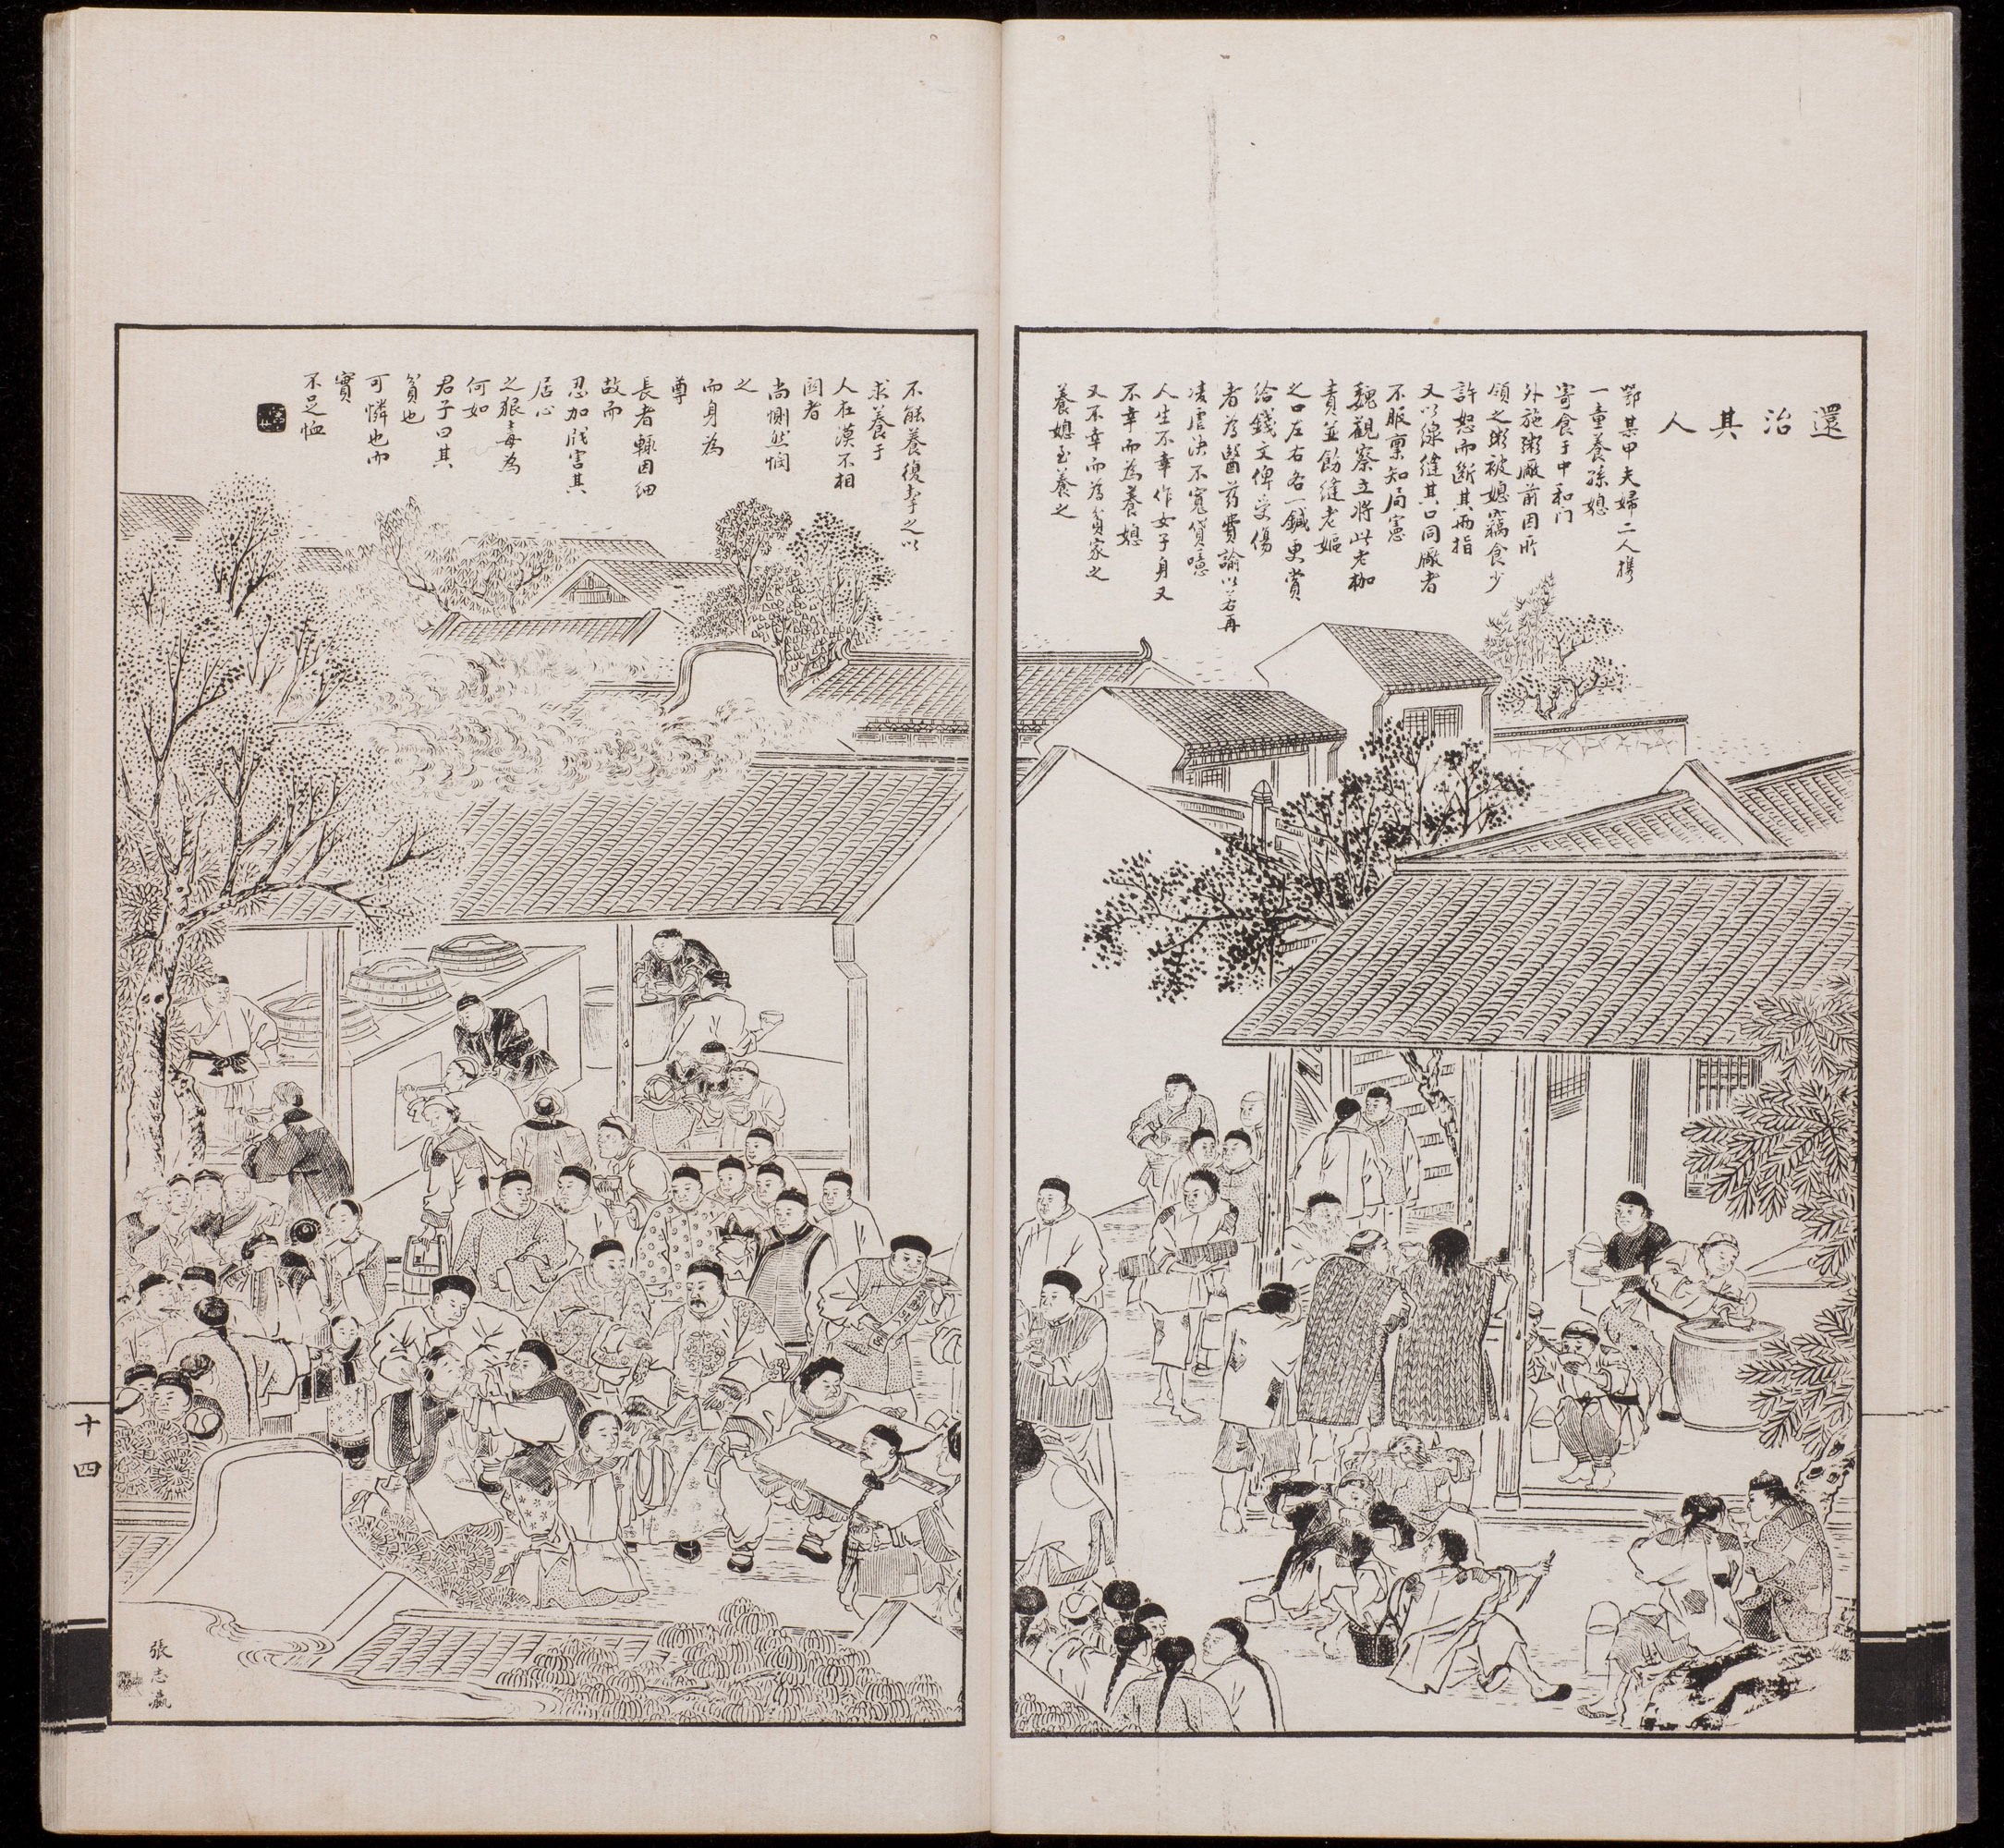 還治其人
鄂某甲夫婦二人攜
一童養孫媳
寄食于中和門
外施粥廠前因所
領之粥被媳竊食少
許怒而斷其兩指
又以線縫其口同廠者
不服稟知局憲
魏觀察立將此老枷
責並飭縫老嫗
之口左右各一鍼更賞
給錢文俾受傷
者為醫葯費諭以若再
凌虐決不寬貸噫
人生不幸作女子身又
不幸而為養媳
又不幸而為貧家之
養媳至養之
不能養復挈之以
求養于
人在漠不相
関者
尚惻然憫
之
而身為
尊
長者輒因細
故而
忍加戕害其
居心
之狠毒為
何如
君子曰其
貧也
可憐也而
實
不足恤
張志瀛
十四